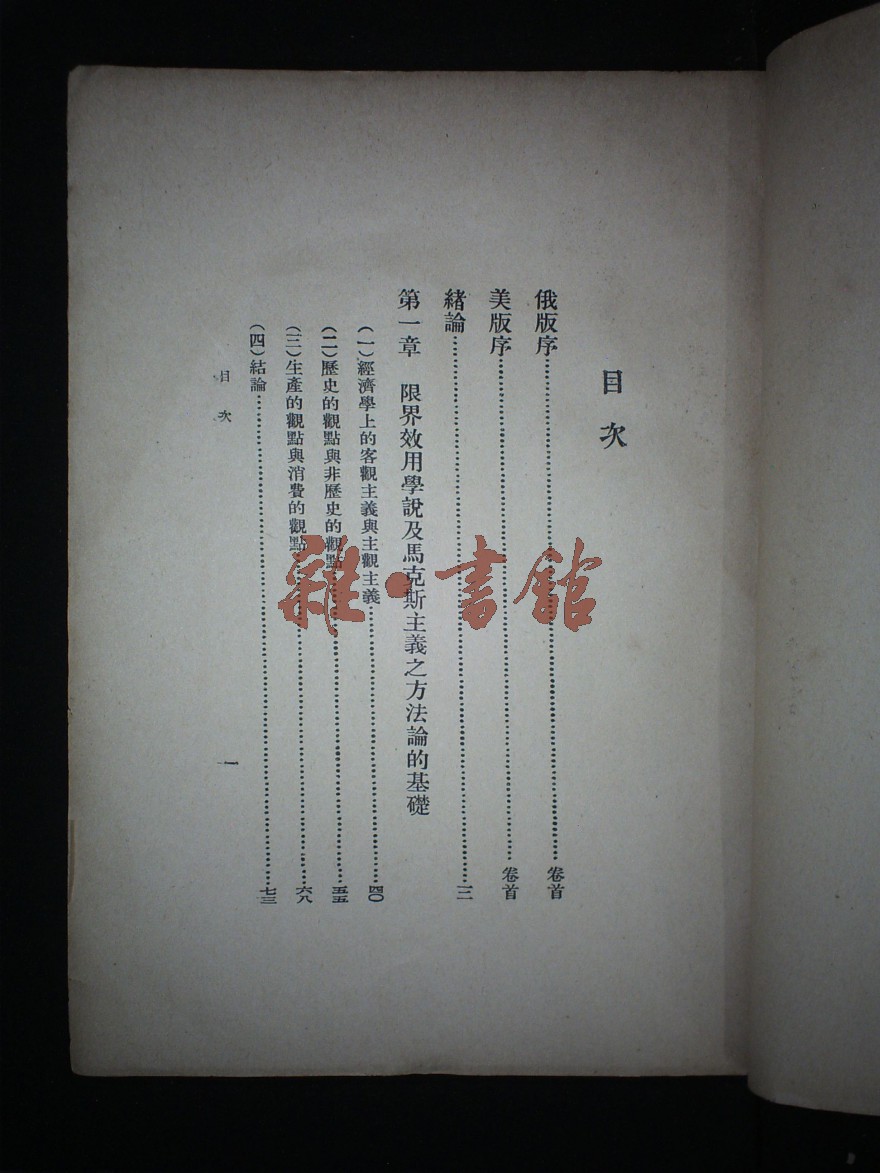 目次
俄版序……卷首
美版序……卷首
緒論……三
第一章　限界效用學說及馬克斯主義之方法論的基礎
(一)經濟學上的客觀主義與主觀主義……四〇
(二)歷史的觀點與非歷史的觀點……五五
(三)生產的觀點與消費的觀點……六八
(四)結論……七三
目次
一
雜·書館